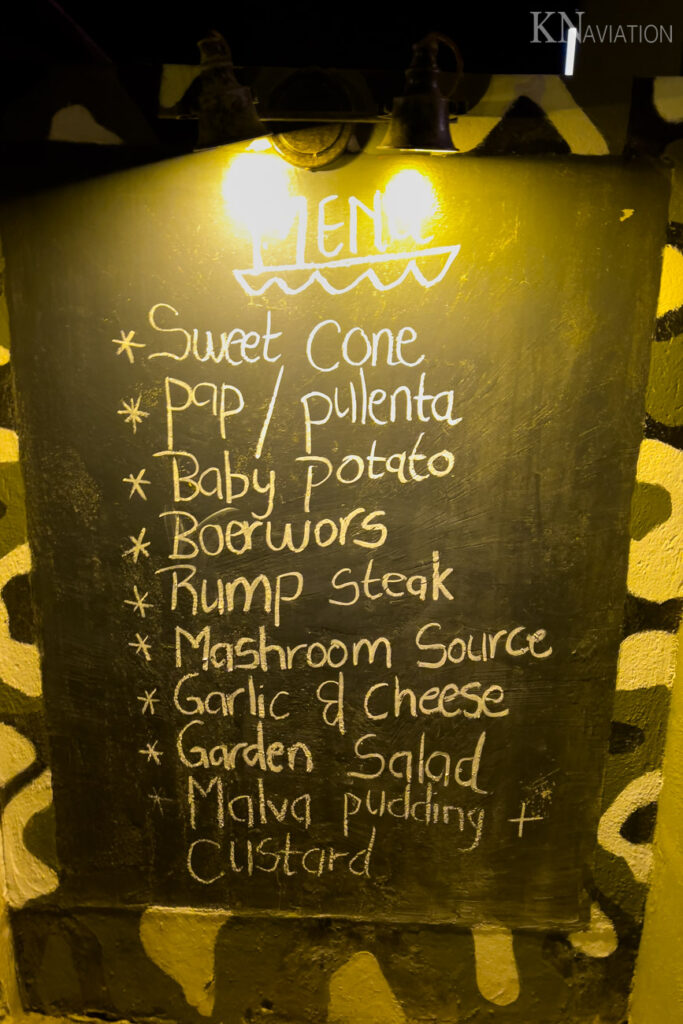 KNAVIATION
MENU
* Sweet Cone
* pap / pulenta
* Baby potato
* Boerwors
* Rump steak
* Mashroom Source
* Garlic & cheese
* Garden Salad
* Malva pudding +
Custard